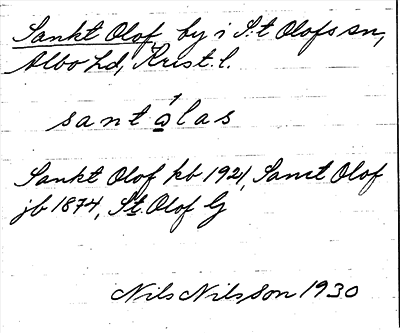 Sankt Olof, by i S:t Olofs sn,
Albo hd, Krist. l.
sant ólas
Sankt Olof kb 1921, Sanct Olof
jb 1874, St. Olof G
Nils Nilsson 1930